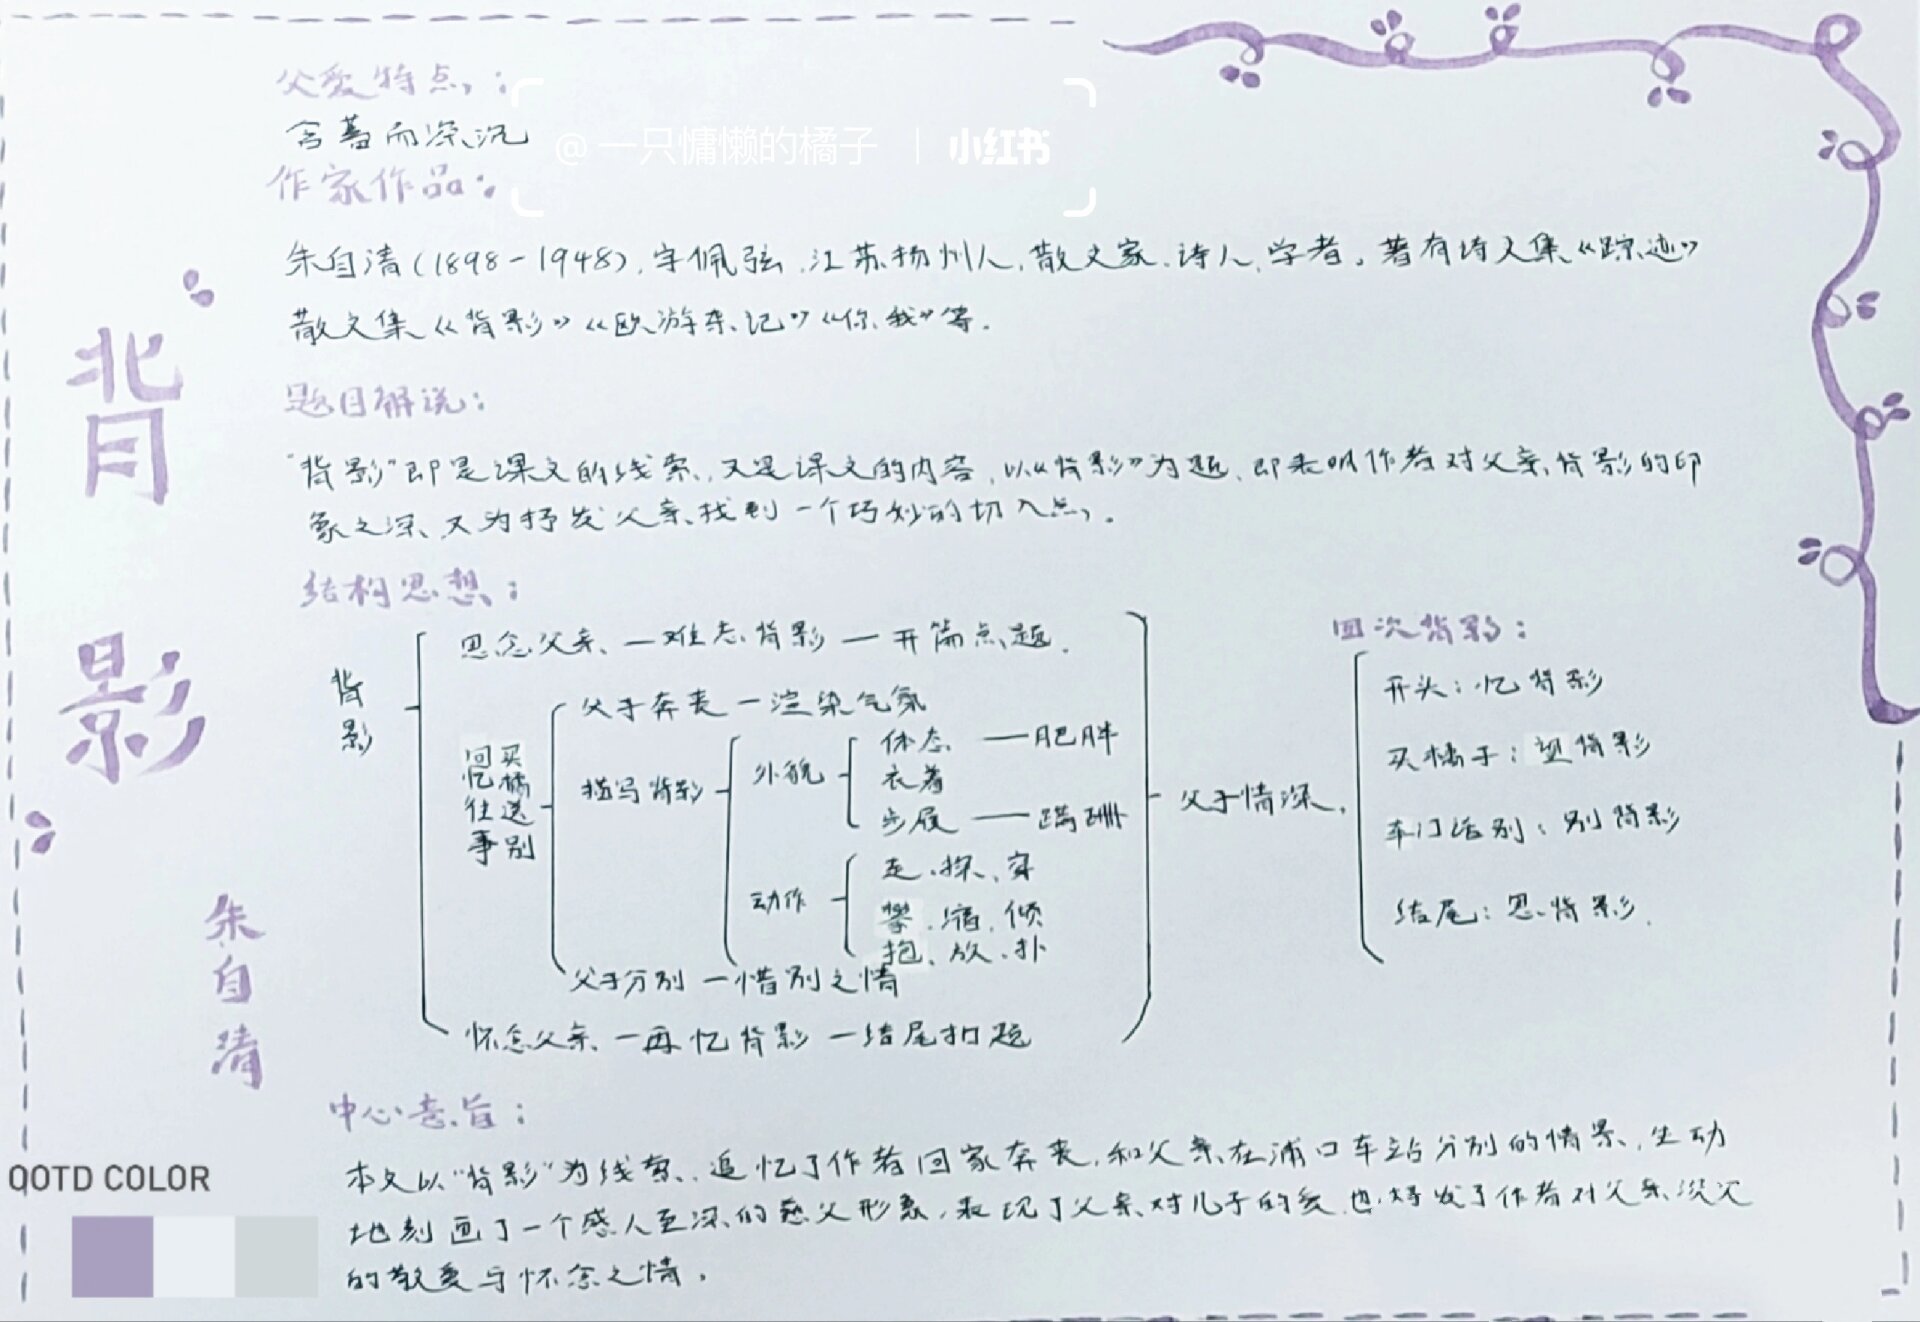 父爱特点：
含蓄而深沉
@一只慵懒的橘子 | 小红书
作家作品：
朱自清(1898-1948),字佩弦,江苏扬州人,散文家、诗人、学者。著有诗文集《踪迹》
散文集《背影》《欧游杂记》《你我》等.
题目解说：
"背影"即是课文的线索,又是课文的内容,以《背影》为题,即表明作者对父亲背影的印
象之深,又为抒发父亲找到一个巧妙的切入点。
结构思想：
背影
思念父亲—难忘背影—开篇点题.
回忆往事
买橘送别
父子奔丧—渲染气氛
描写背影
外貌
体态——肥胖
衣着
步履——蹒跚
动作
走、探、穿
攀、缩、倾
抱、放、扑
父子分别—惜别之情
怀念父亲—再忆背影—结尾扣题
父子情深.
四次背影：
开头：忆背影
买橘子：望背影
车门话别：别背影
结尾：思背影.
中心意旨：
本文以"背影"为线索,追忆了作者回家奔丧,和父亲在浦口车站分别的情景,生动
地刻画了一个感人至深的慈父形象,表现了父亲对儿子的爱,也抒发了作者对父亲深沉
的敬爱与怀念之情。
背影
朱自清
QOTD COLOR